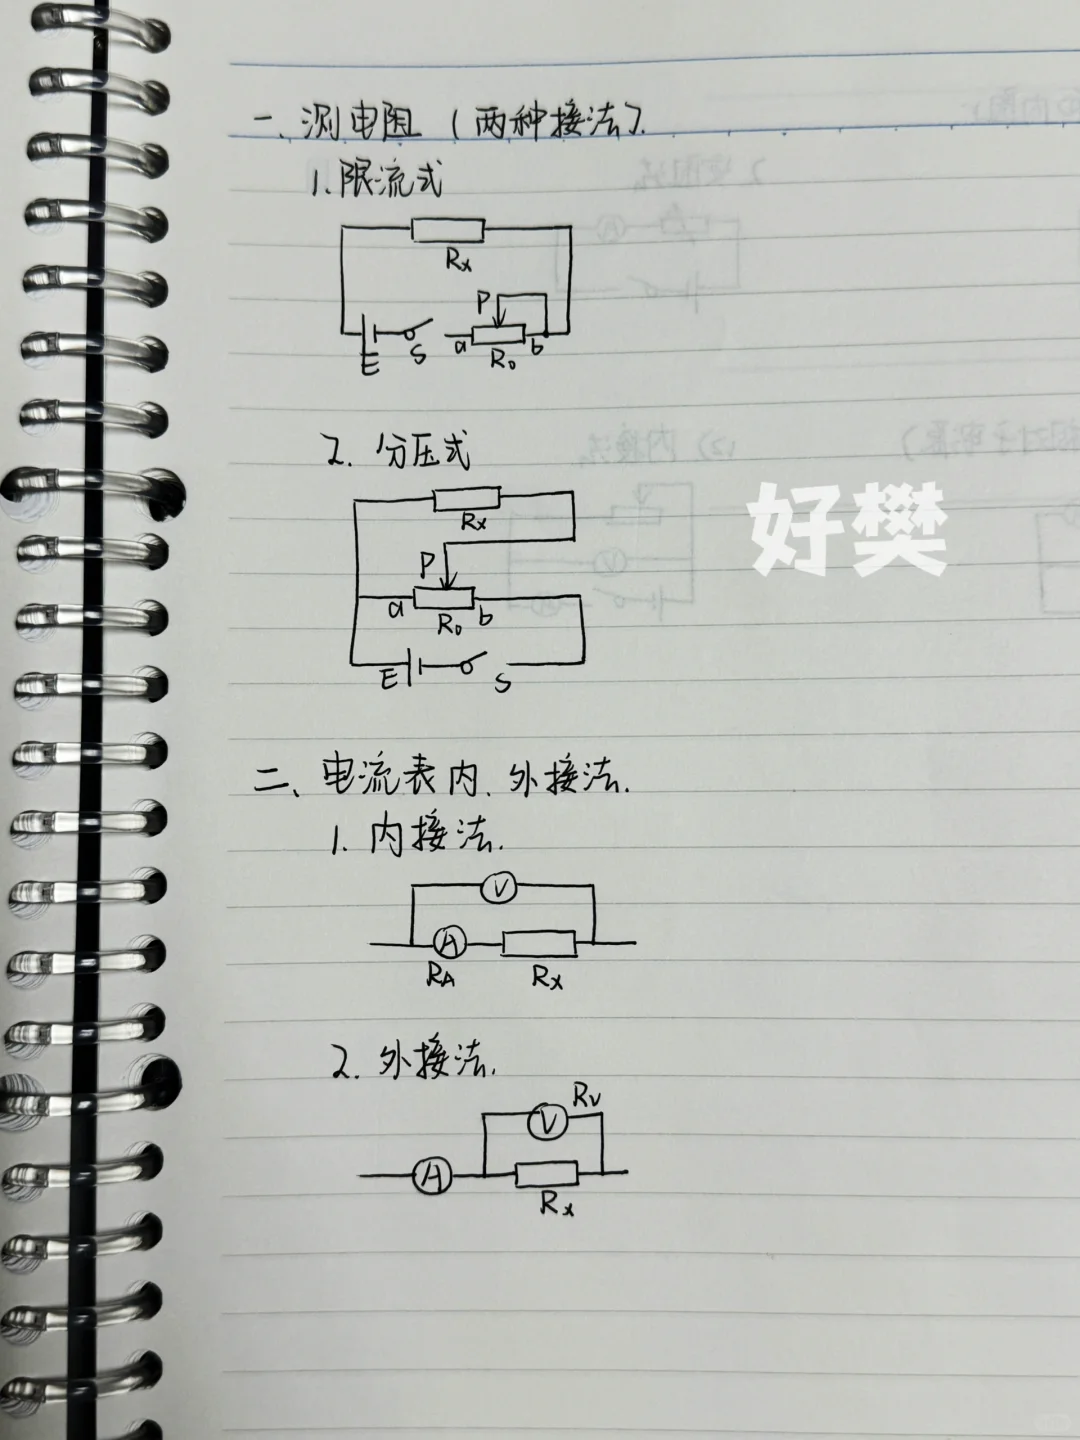 一、测电阻（两种接法）.
1. 限流式
Rx
P
E S a R₀ b
2. 分压式
Rx
P
a R₀ b
E S
好樊
二、电流表内、外接法.
1. 内接法.
V
A
RA Rx
2. 外接法.
RV
V
A
Rx